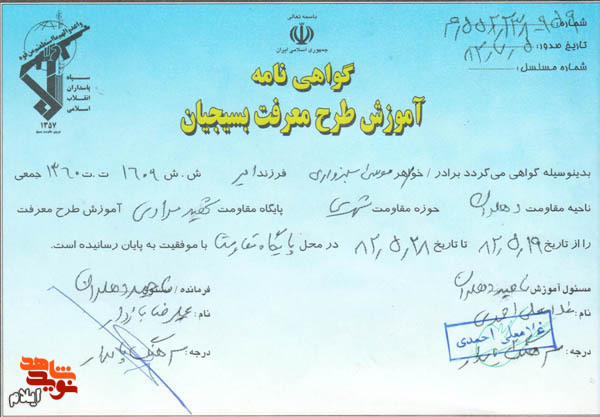 باسمه تعالی
جمهوری اسلامی ایران
شماره:
تاریخ صدور:
شماره مسلسل:
واعدوا لهم ما استطعتم من قوه
سپاه
پاسداران
انقلاب
اسلامی
۱۳۵۷
گواهی نامه
آموزش طرح معرفت بسیجیان
بدینوسیله گواهی می گردد برادر / خواهر موسی سبزواری فرزند امیر ش.ش ۱۶۰۹ ت.ت ۱۳۶۰ جمعی
ناحیه مقاومت دهلران حوزه مقاومت شهری پایگاه مقاومت شهید مرادی آموزش طرح معرفت
را از تاریخ ۸۲,۵,۱۹ تا تاریخ ۸۲,۵,۲۸ در محل پایگاه مقاومت با موفقیت به پایان رسانیده است.
مسئول آموزش ناحیه دهلران
نام: غلامعلی احمدی
غلامعلی احمدی
درجه: سرهنگ پاسدار
فرمانده / مسئول ناحیه دهلران
نام: محمدرضا
درجه: سرهنگ پاسدار
نوید شاهد
ایلام